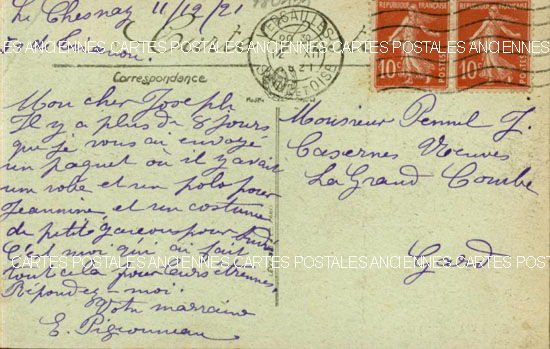 Le Chesnay 11/12/21
REPUBLIQUE FRANÇAISE
REPUBLIQUE FRANÇAISE
10c POSTES
10c POSTES
VERSAILLES
SEINE ET OISE
Correspondance
Mon cher Joseph
Il y a plus de 8 jours
que je vous ai envoyé
un paquet ou il y avait
une robe et un polo pour
Jeannine, et un costume
de petits garçons pour
C'est moi qui ai fait
tout cela pour leurs étrennes
Répondez moi.
Votre marraine
E. Pigeonneau
Monsieur Pennil J.
Casernes
La Grand Combe
Gard
CARTES POSTALES ANCIENNES CARTES POSTALES ANCIENNES CARTES POSTALES ANCIENNES